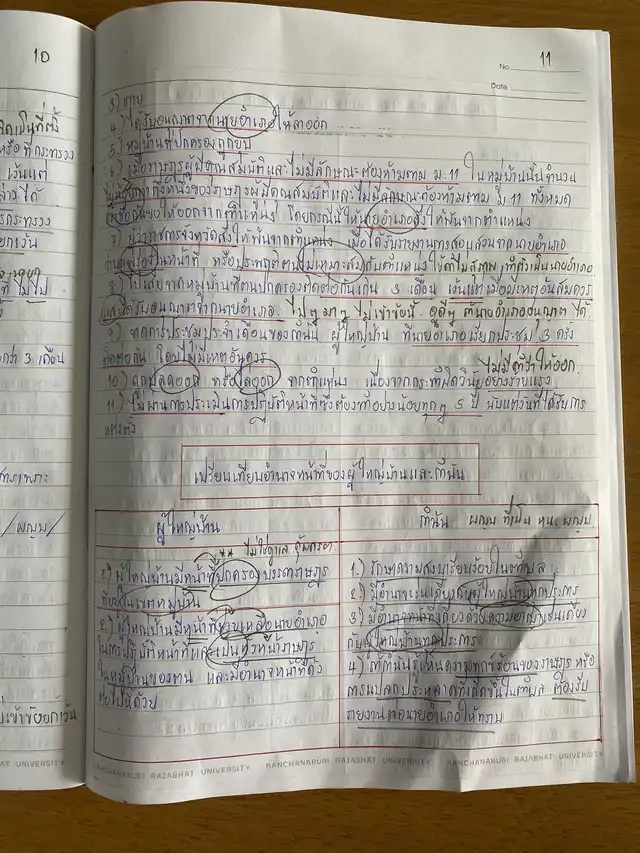 10
11
No
Date
3) ตาย
4) ได้รับอนุญาตจากนายอำเภอให้ลาออก
5) หมู่บ้านที่ปกครองถูกยุบ
6) เมื่อราษฎรผู้มีคุณสมบัติและไม่มีลักษณะต้องห้ามตาม ม 11 ในหมู่บ้านนั้นจำนวน
ไม่น้อยกว่ากึ่งหนึ่งของราษฎรผู้มีคุณสมบัติและไม่มีลักษณะต้องห้ามตาม ม 11 ทั้งหมด
เข้าชื่อกันขอให้ออกจากตำแหน่ง โดยกรณีนี้ให้นายอำเภอสั่งให้พ้นจากตำแหน่ง
7) ผู้ว่าราชการจังหวัดสั่งให้พ้นจากตำแหน่ง เมื่อได้รับรายงานการสอบสวนจากนายอำเภอ
ว่าบกพร่องในหน้าที่ หรือประพฤติตนไม่เหมาะสมกับตำแหน่ง
8) ไปเสียจากหมู่บ้านที่ตนปกครองติดต่อกันเกิน 3 เดือน เว้นแต่เมื่อมีเหตุอันสมควร
และได้รับอนุญาตจากนายอำเภอ. ไปๆ มาๆ ไม่เข้าข้อนี้
9) ขาดการประชุมประจำเดือนของกำนัน ผู้ใหญ่บ้าน ที่นายอำเภอเรียกประชุม 3 ครั้ง
ติดต่อกัน โดยไม่มีเหตุอันควร
10) ถูกปลดออก หรือไล่ออก จากตำแหน่ง เนื่องจากกระทำผิดวินัยอย่างร้ายแรง
ไม่มีคำว่าให้ออก.
11) ไม่ผ่านการประเมินการปฏิบัติหน้าที่ซึ่งต้องทำอย่างน้อยทุกๆ 5 ปี นับแต่วันที่ได้รับการ
แต่งตั้ง
เปรียบเทียบอำนาจหน้าที่ของผู้ใหญ่บ้านและกำนัน
ผู้ใหญ่บ้าน
** ไม่ใช่ดูแล คุ้มครอง
1.) ผู้ใหญ่บ้านมีหน้าที่ปกครองบรรดาราษฎร
ที่อยู่ในเขตหมู่บ้าน
2.) ผู้ใหญ่บ้านมีหน้าที่ช่วยเหลือนายอำเภอ
ในการปฏิบัติหน้าที่และเป็นหัวหน้าราษฎร
ในหมู่บ้านของตน และมีอำนาจหน้าที่ดัง
ต่อไปนี้ด้วย
กำนัน ผญบ ที่เป็น หน. ผญบ
1.) รักษาความสงบเรียบร้อยในตำบล
2.) มีอำนาจเช่นเดียวกับผู้ใหญ่บ้านทุกประการ
3) มีอำนาจหน้าที่เกี่ยวด้วยความอาญาเช่นเดียว
กับผู้ใหญ่บ้านทุกประการ
4) ถ้ากำนันรู้เห็นความทุกข์ร้อนของราษฎร หรือ
การแปลกประหลาดที่เกิดขึ้นในตำบล ต้องรีบ
รายงานต่อนายอำเภอให้ทราบ
UNIVERSITY
KANCHANABURI RAJABHAT UNIVERSITY KANCHANABURI RAJABHAT UNIVERSITY KANCHANABURI RAJABHAT UNIVERSITY